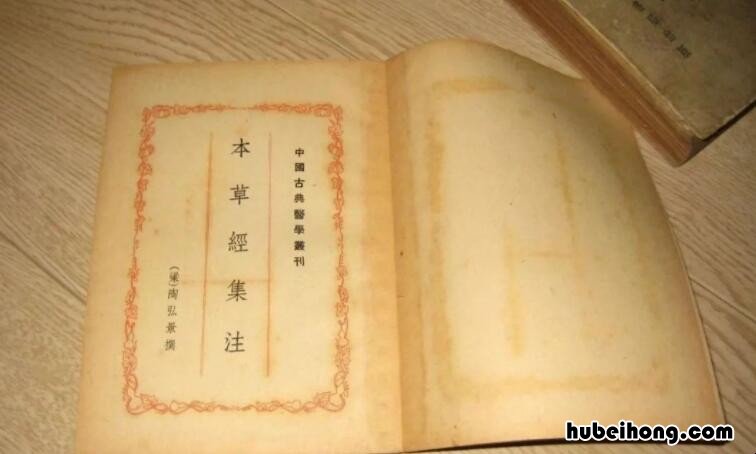 中國古典醫學叢刊
本草經集注
(梁)陶弘景撰
hubeihong.com